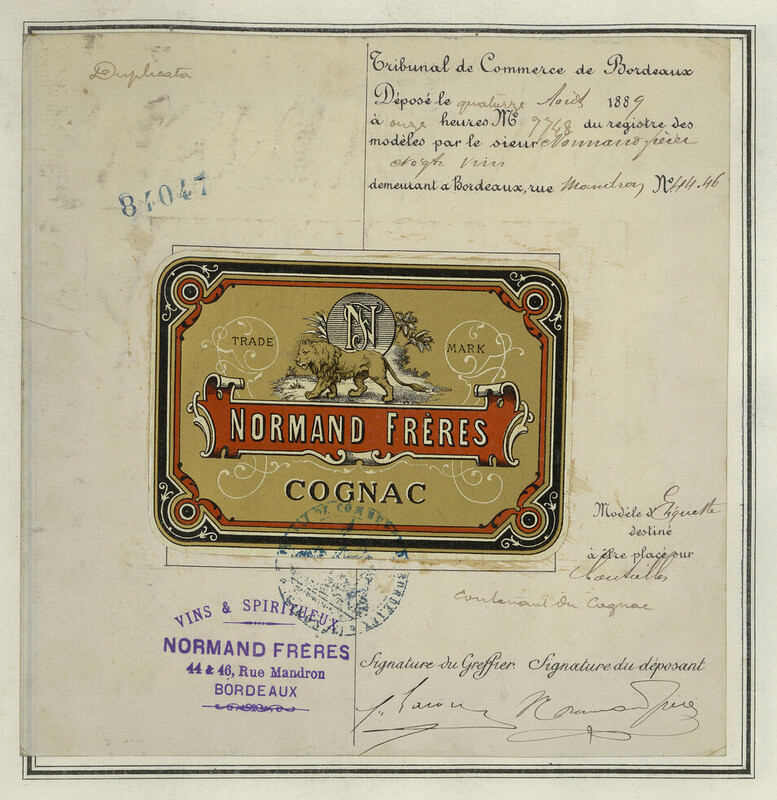 Duplicata
Tribunal de Commerce de Bordeaux
Déposé le quatorze Août 1889
à onze heures Nº 9748 du registre des
modèles par le sieur Normand frères
Négts Vins
demeurant à Bordeaux, rue Mandron Nº 44.46
84047
NJ
TRADE MARK
NORMAND FRÈRES
COGNAC
Modèle d'Etiquette
destiné
à être placé sur
bouteilles
contenant du Cognac
VINS & SPIRITUEUX
NORMAND FRÈRES
44 & 46, Rue Mandron
BORDEAUX
Signature du Greffier. Signature du déposant
Normand frères